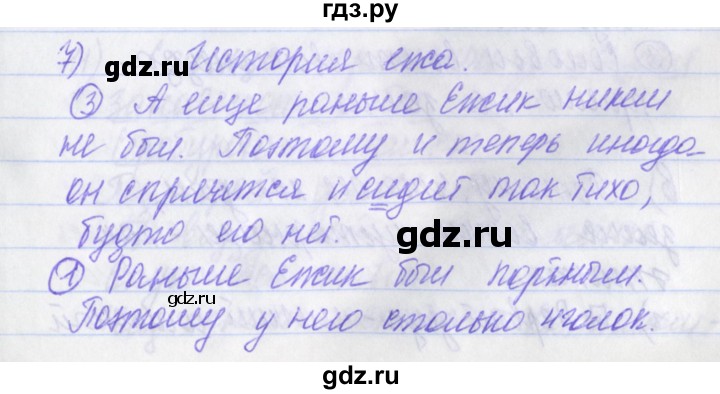 гдз.ру
7) История ежа.
gdz.ru
③ А еще раньше Ежик никем
не был. Поэтому и теперь иногда
он спрячется и сидит так тихо,
будто его нет.
gdz.ru
① Раньше Ежик был портным.
gdz.ru
Поэтому у него столько иголок.
gdz.ru